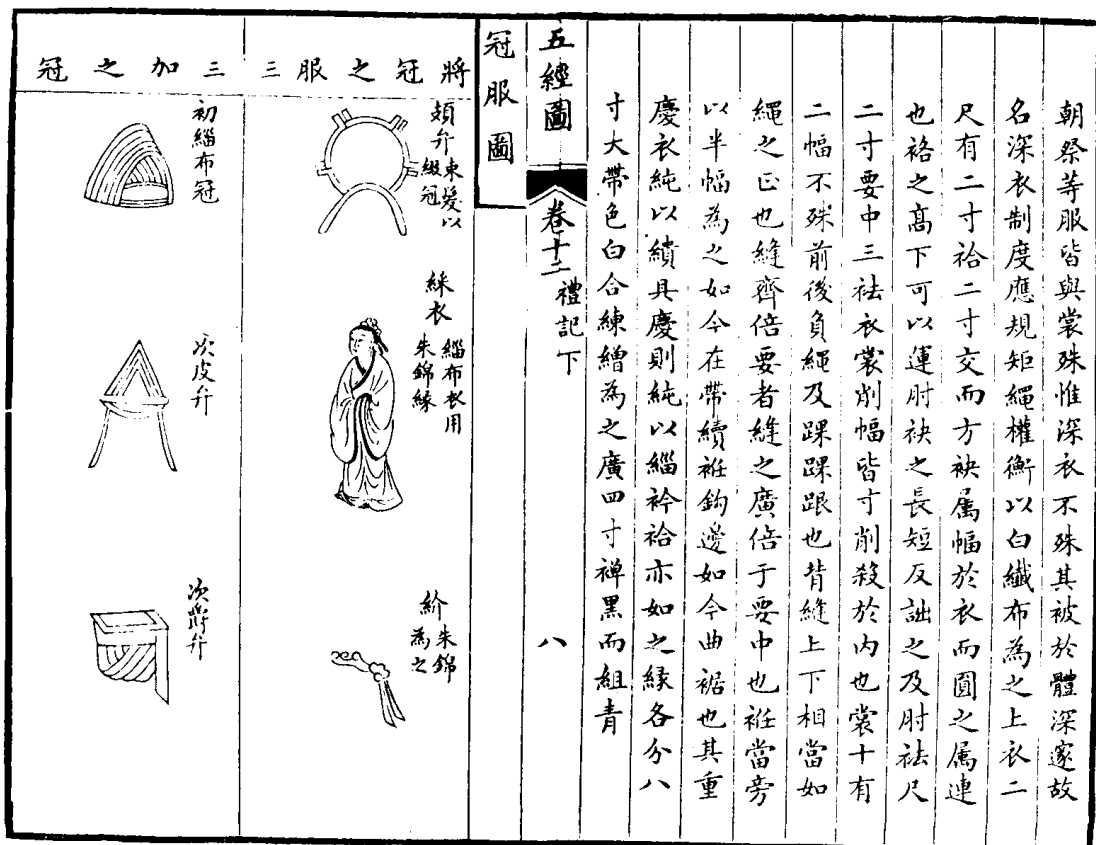 朝祭等服皆與裳殊惟深衣不殊其被於體深邃故
名深衣制度應規矩繩權衡以白纖布為之上衣二
尺有二寸袷二寸交而方袂属幅於衣而圓之属連
也袼之高下可以運肘袂之長短反詘之及肘袪尺
二寸要中三袪衣裳削幅皆寸削殺於内也裳十有
二幅不殊前後負繩及踝踝跟也背縫上下相當如
繩之正也縫齊倍要者縫之廣倍于要中也袵當旁
以半幅為之如今在帶續袵鈎邊如今曲裾也其重
慶衣純以繢具慶則純以緇衿袷亦如之緣各分八
寸大帶色白合練繒為之廣四寸襌黑而組青
五經圖
卷十二
禮記下
八
冠服圖
將冠之服三
頍弁
東髮以
綴冠
綵衣
緇布衣用
朱錦緣
紒
朱錦
為之
三加之冠
初緇布冠
次皮弁
次爵弁